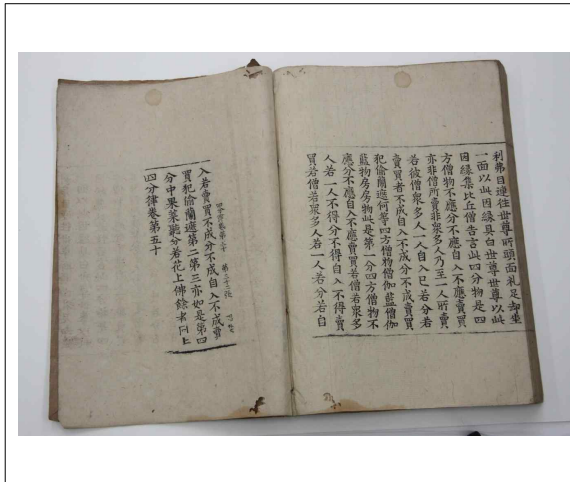 利弗目連往世尊所頭面礼足却坐
一面以此因緣具白世尊世尊以此
因緣集比丘僧告言此四分物是四
方僧物不應分不應自入不應賣買
亦非僧所賣非衆多人乃至一人所賣
若彼僧衆多人一人自入已若分若
賣買者不成自入不成分不成賣買
犯偷蘭遮何等四方僧物僧伽藍僧伽
藍物房房物此是第一分四方僧物不
應分不應自入不應賣買若僧若衆多
人若一人不得分不得自入不得賣
買若僧若衆多人若一人若分若自
四分律卷第五十
入若賣買不成分不成自入不成賣
買犯偷蘭遮第二第三亦如是第四
分中果菜聽分若花上佛餘者同上
四分律卷第五十